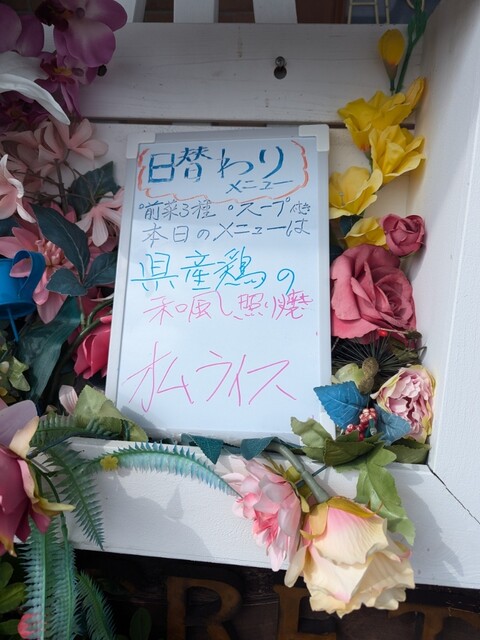 日替わり
メニュー
°前菜3種 °スープ付き
本日のメニューは
県産鶏の
和風し照り焼
オムライス